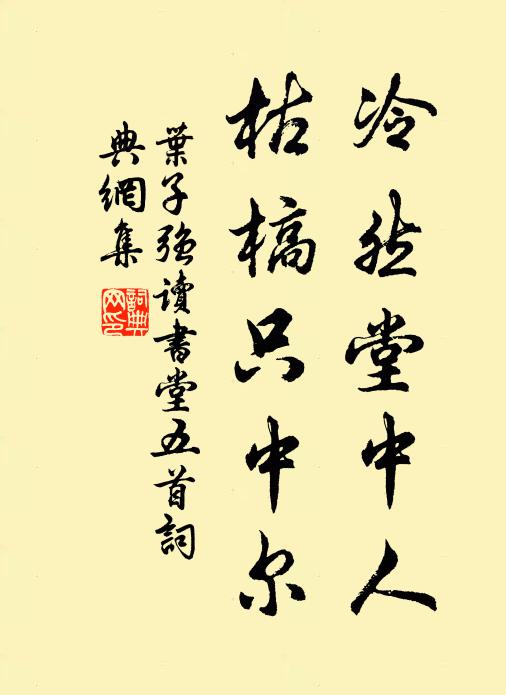 冷然堂中人
枯槁只中尔
葉子强讀書堂五首詞
典網集
詞典網印